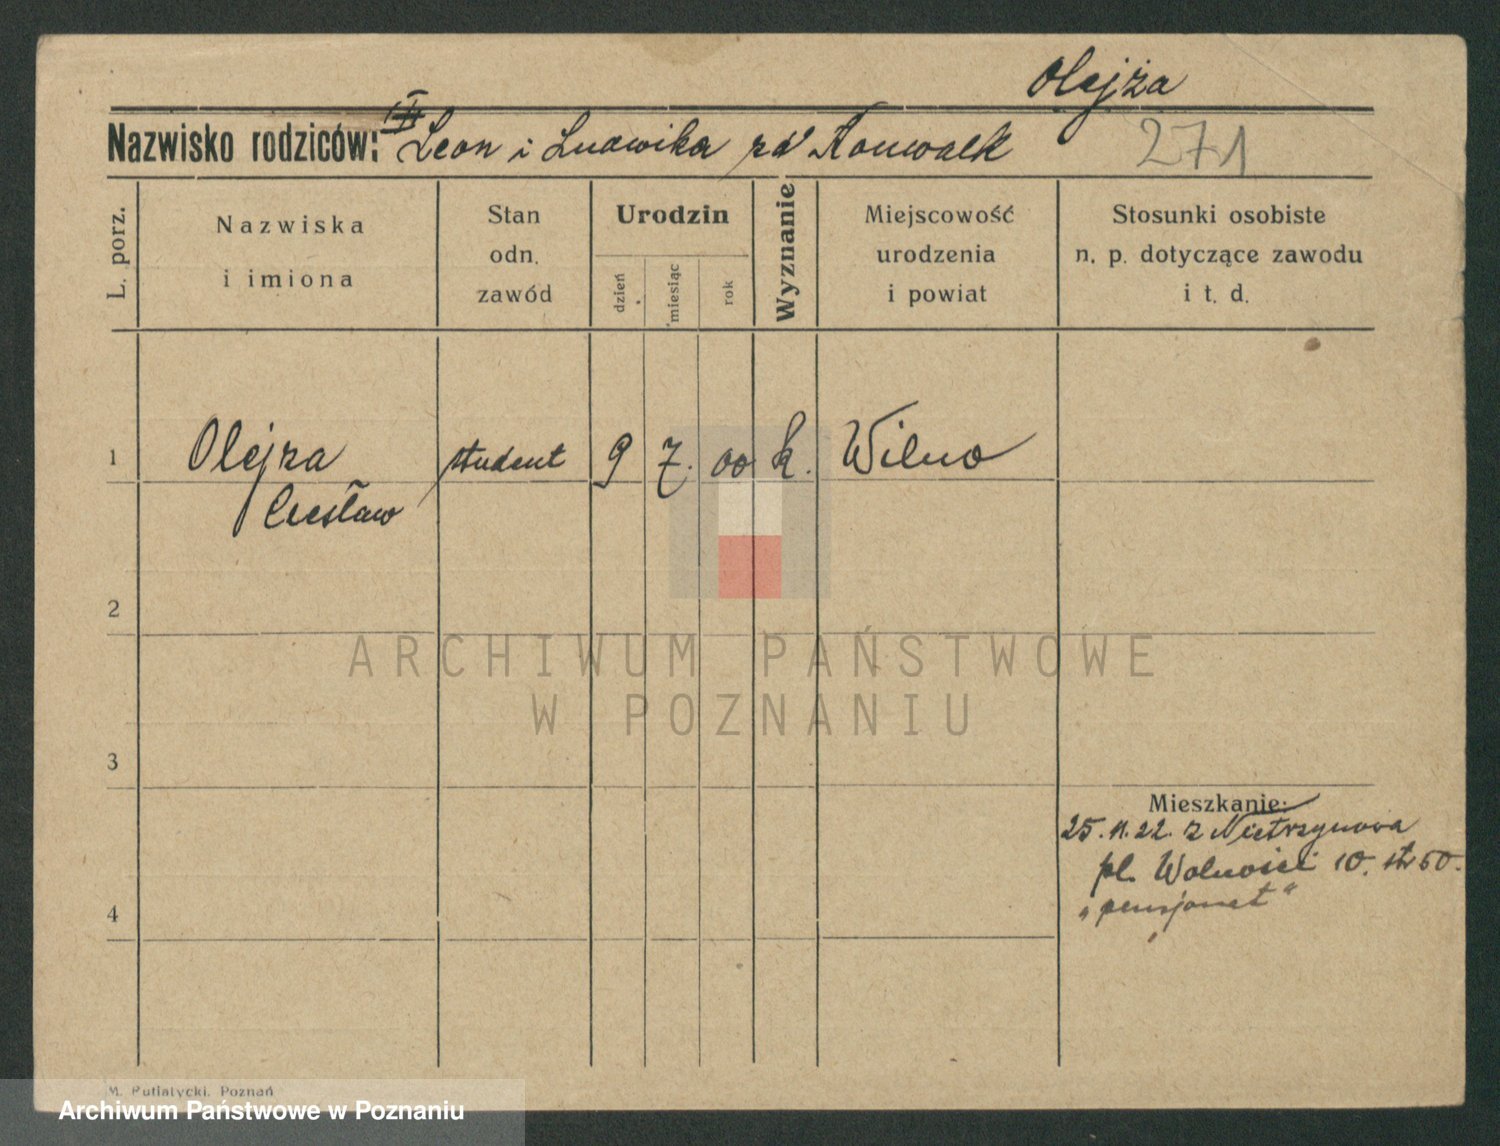 Olejża
Nazwisko rodziców: Leon i Ludwika zd Konwalk
271
L. porz.
Nazwiska
i imiona
Stan
odn.
zawód
Urodzin
dzień
miesiąc
rok
Wyznanie
Miejscowość
urodzenia
i powiat
Stosunki osobiste
n. p. dotyczące zawodu
i t. d.
1 Olejża student 9 7. 00 k. Wilno
Czesław
2
ARCHIWUM PAŃSTWOWE
W POZNANIU
3
Mieszkanie:
25. 11. 22. z
pl. Wolności 10.
4
"pensjonat"
M. Putiatycki, Poznań
Archiwum Państwowe w Poznaniu